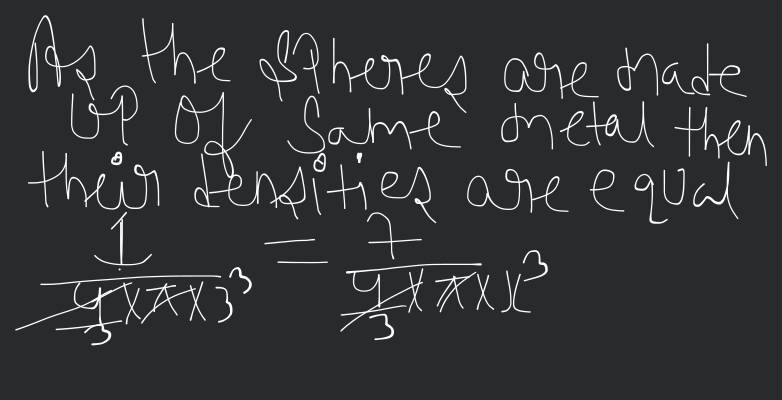 As the spheres are made
up of same metal then
their densities are equal
1 = 7
4/3 x π x 3³ 4/3 x π x x³